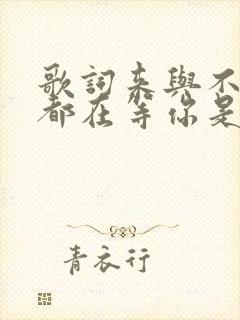 歌詞来與不
都在等你是
青衣行